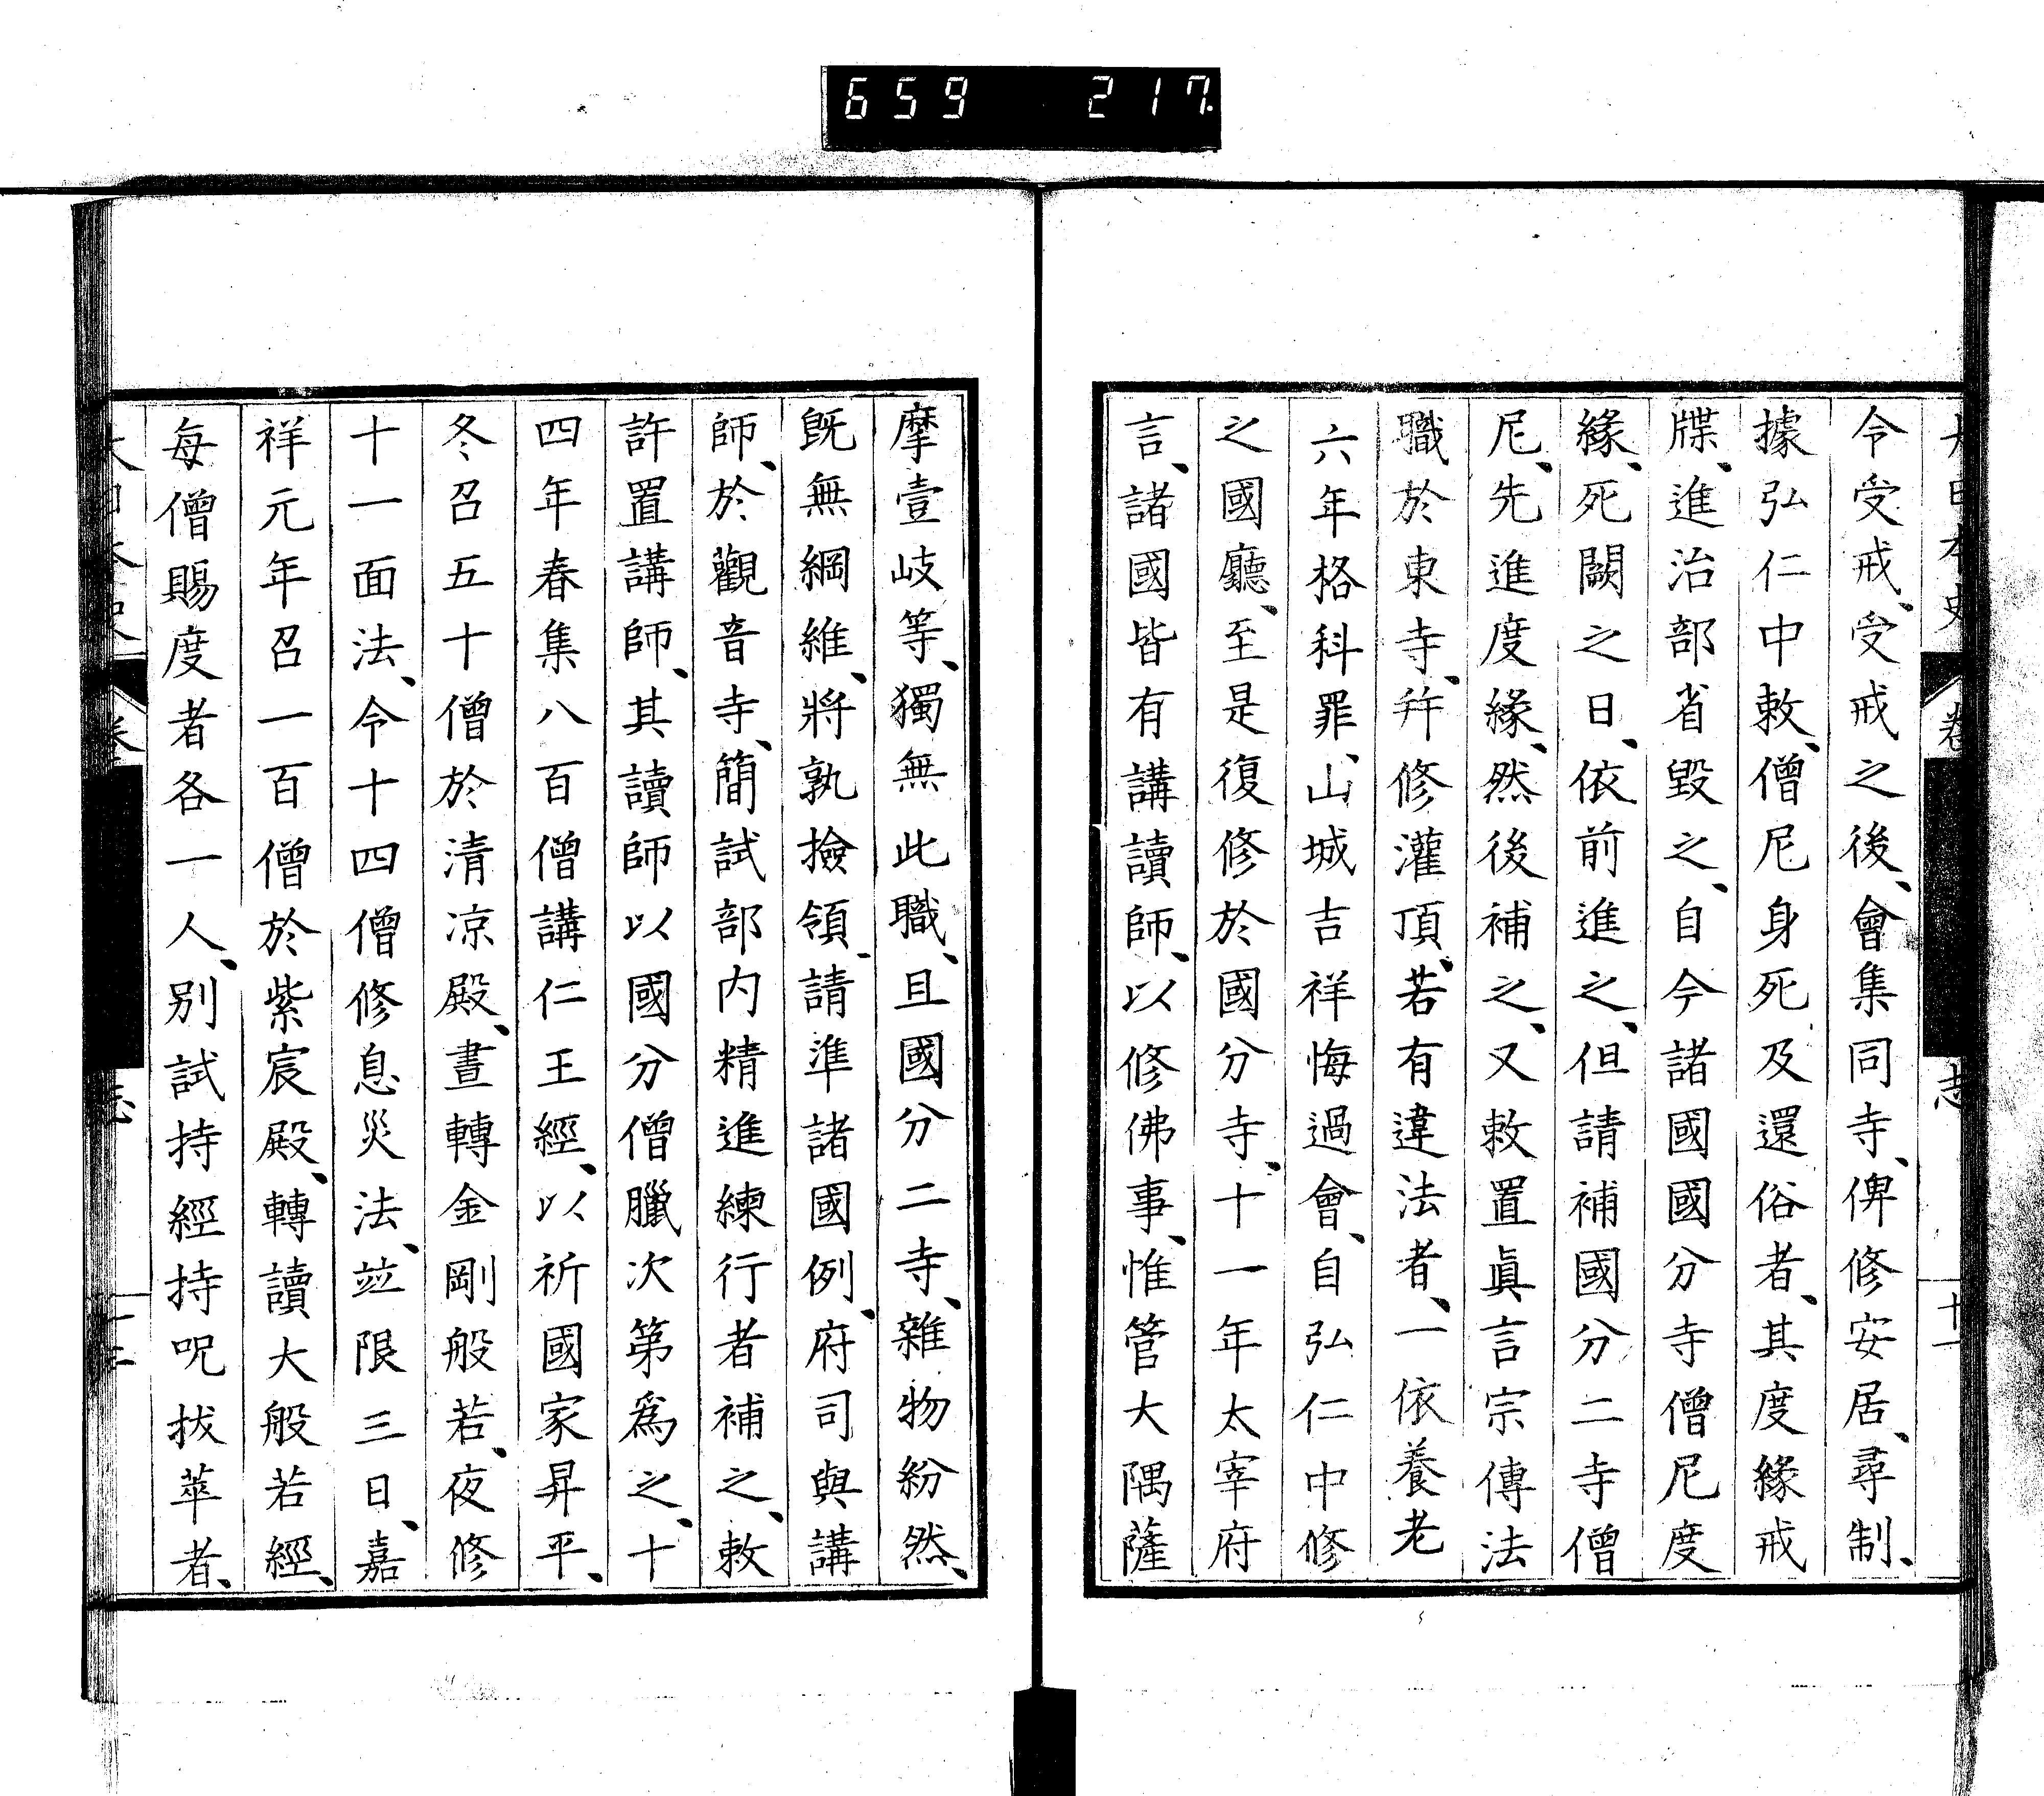 659 217
令受戒、受戒之後、會集同寺、俾修安居、尋制、
據弘仁中敕、僧尼身死及還俗者、其度緣戒
牒、進治部省毀之、自今諸國國分寺僧尼度
緣、死闕之日、依前進之、但請補國分二寺僧
尼、先進度緣、然後補之、又敕置眞言宗傳法
職於東寺、幷修灌頂、若有違法者、一依養老
六年格科罪、山城吉祥悔過會、自弘仁中修
之國廳、至是復修於國分寺、十一年太宰府
言、諸國皆有講讀師、以修佛事、惟管大隅薩
摩壹岐等、獨無此職、且國分二寺、雜物紛然、
既無綱維、將孰撿領、請準諸國例、府司與講
師、於觀音寺、簡試部内精進練行者補之、敕
許置講師、其讀師以國分僧臘次第爲之、十
四年春集八百僧講仁王經、以祈國家昇平、
冬召五十僧於清凉殿、晝轉金剛般若、夜修
十一面法、令十四僧修息災法、竝限三日、嘉
祥元年召一百僧於紫宸殿、轉讀大般若經、
每僧賜度者各一人、別試持經持呪拔萃者、